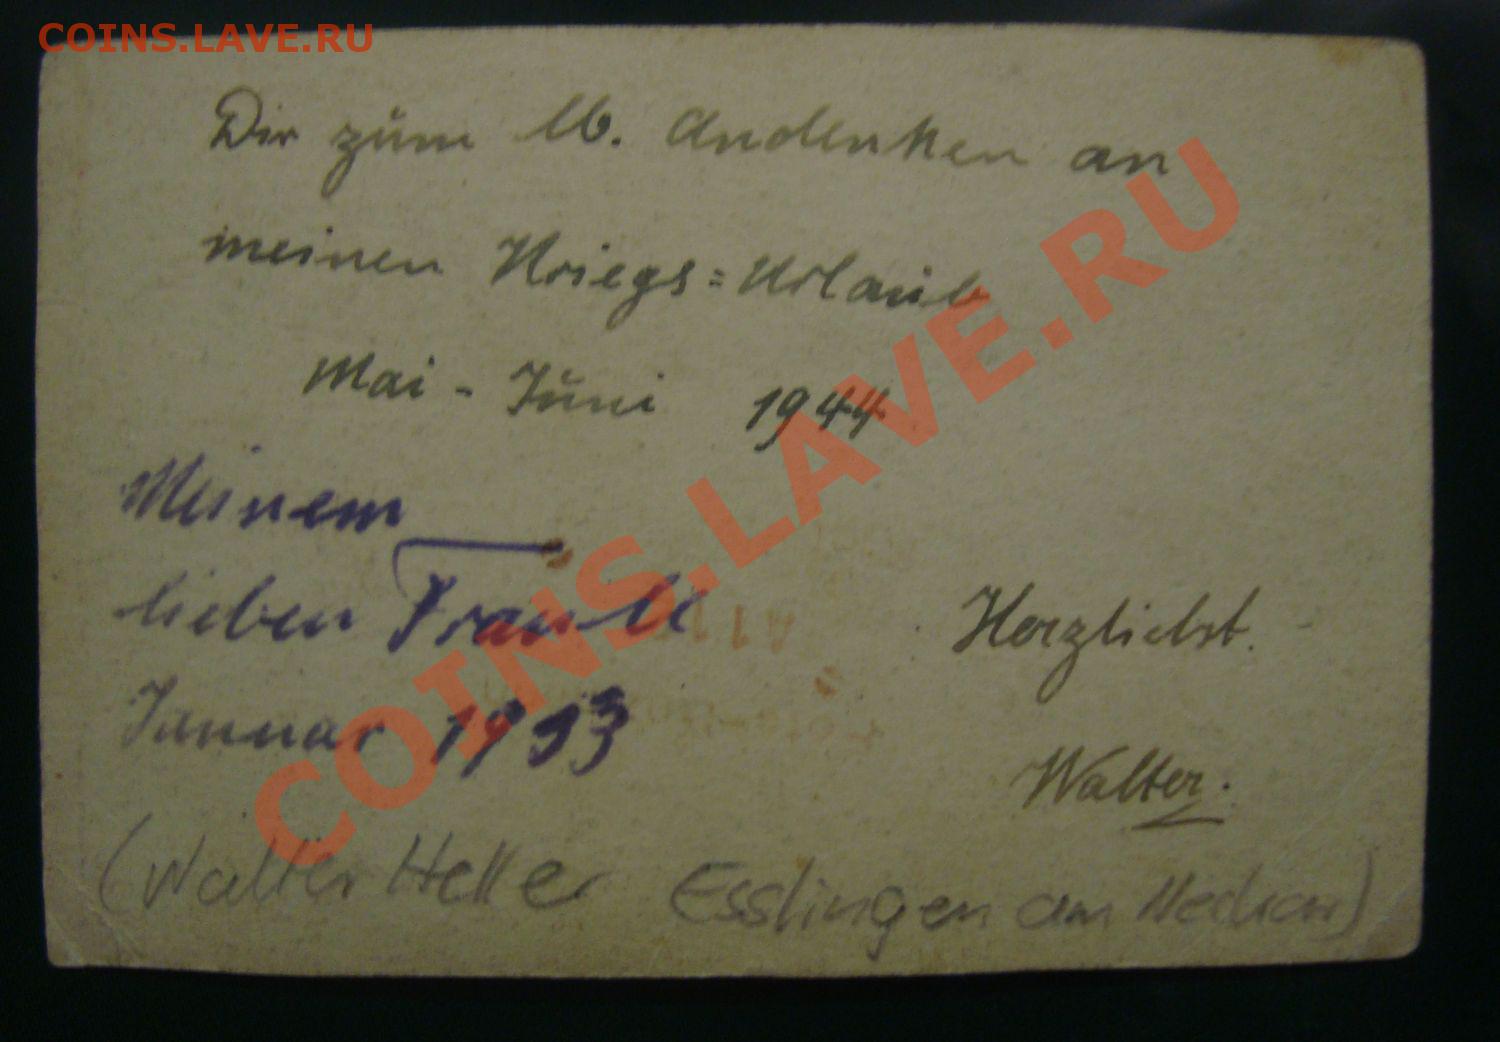 COINS.LAVE.RU
Dir zum lb. Andenken an
meinen Kriegs=Urlaub
Mai - Juni 1944
Meinem
lieben
Januar 19
Herzlichst.
Walter.
(Walter Heller Esslingen am Neckar)
COINS.LAVE.RU